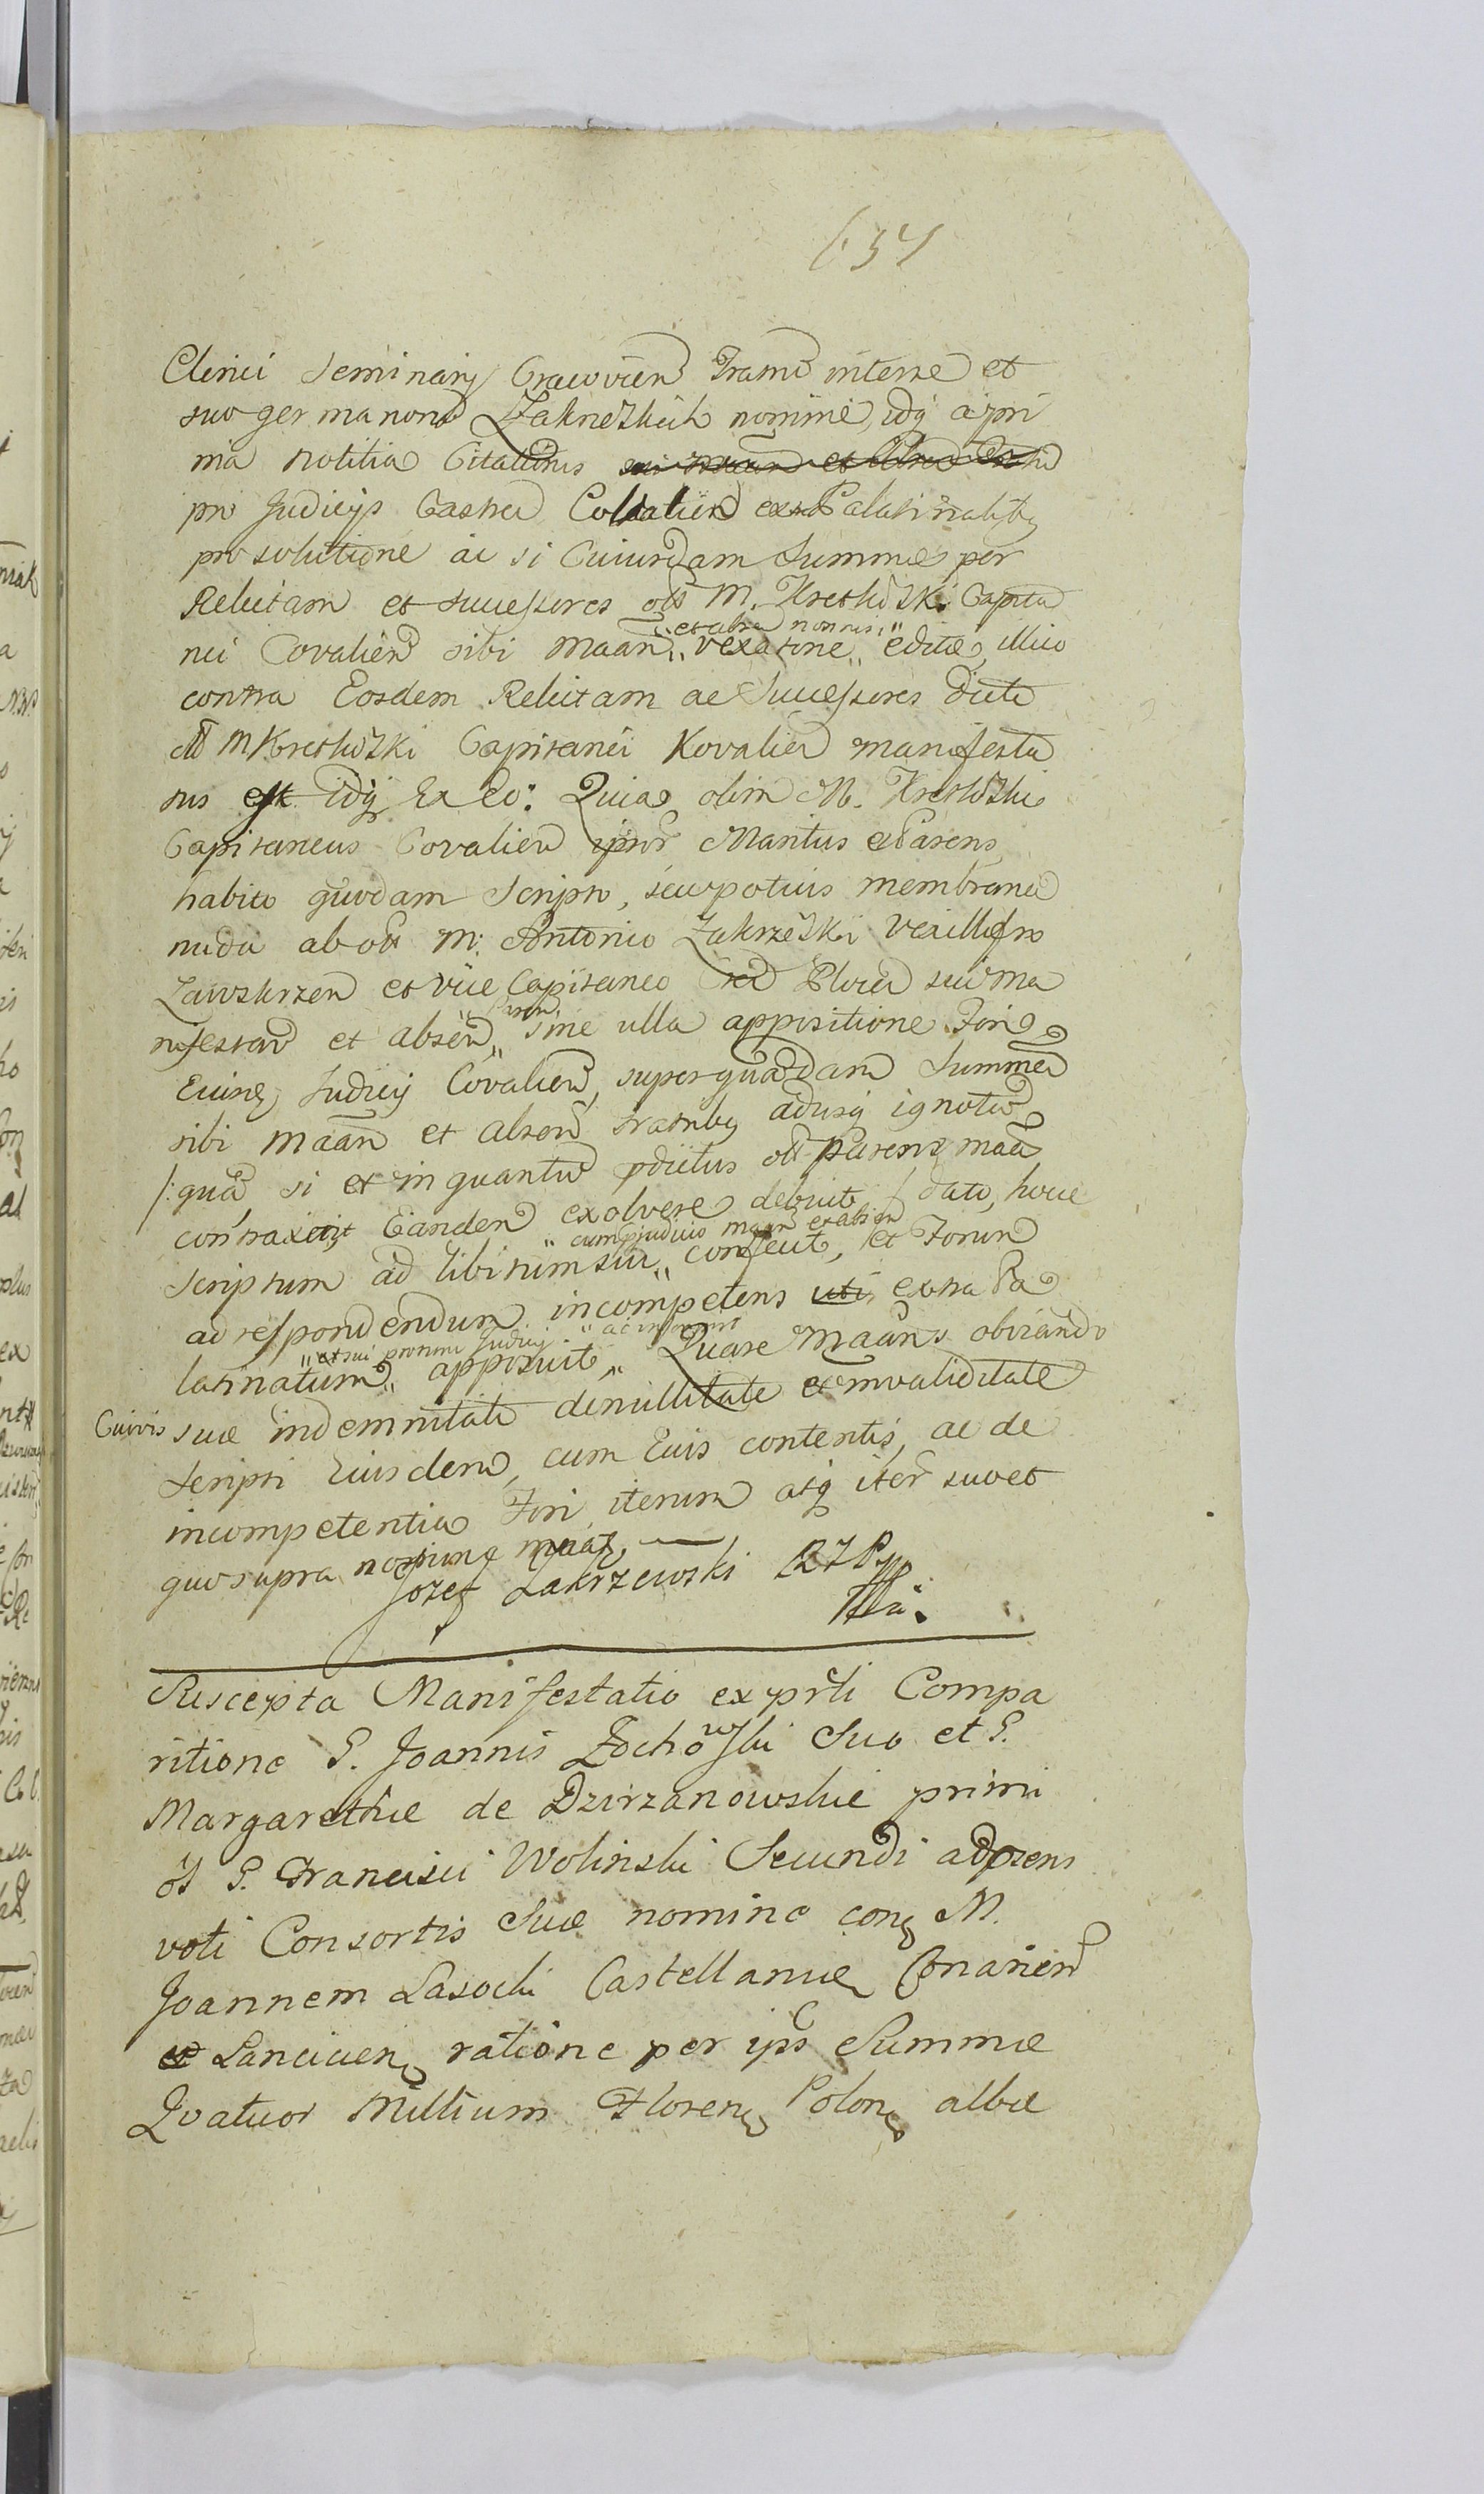 634
Clerici Seminarij Cracovien Fratris interne et
suo germanorum Zakrzeskich nomine, idq a pri
ma notitia Citationis
pro Judicijs Castren Covalien extra Palatinatibq
pro solutione ac si Cuiusdam Summæ per
Relictam et Successores olì M. Kretkoskì Capita
nei Covalien sibi Maan „vexatione„ editæ, illico
"et absen nonnisi"
contra Eosdem Relictam ac Successores dicti
olì M Kretkoski Capitanei Kovalien manifesta
tus est idq Ex Eo: Quia olim M. Kretkoski
Capitaneus Covalien ipsor Maritus et Parens
habito quodam Scripto, seu potius membrana
nuda ab olì M: Antonio Zakrzeski Vexillifro
Zawskrzen et Vice Capitaneo Plocen sui ma
nifestan et absen„ sine ulla appositione Fori
Eiusq Judicij Covalien, super quandam Summam
sibi Maan et absen fratribq adusq ignotam
/: quam, si et in quantum pdictus olì Parens maan
contraxit Eandem exolvere debuit / dato, hocce
Scriptum ad libitum sui„ confecit, et Forum
" cum pjudicio maan et absen
ad respondendum incompetens uti extra Pa
latinatum„ apposuit„ Quare Maans obviando
"et sui Judicij
Cuivis suæ indemnitati de nullitate et invaliditate
Scripti Eiusdem, cum Euis contentis, ac de
incompetentia Fori iterum atq iter suo et
quo supra nomine maat.
Jozef Zakrzewski
Suscepta Manifestatio ex psti Compa
ritione G. Joannis Zochowski Suo et G.
Margarethæ de Dzirzanowskie primi
ol G. Francisci Wolinski Secundi ad præns
voti Consortis Suæ nomine conq M.
Joannem Lasocki Castellanum Conarien
Lancicien ratione per ips Summæ
Quatuor Millium Floren Polon albæ